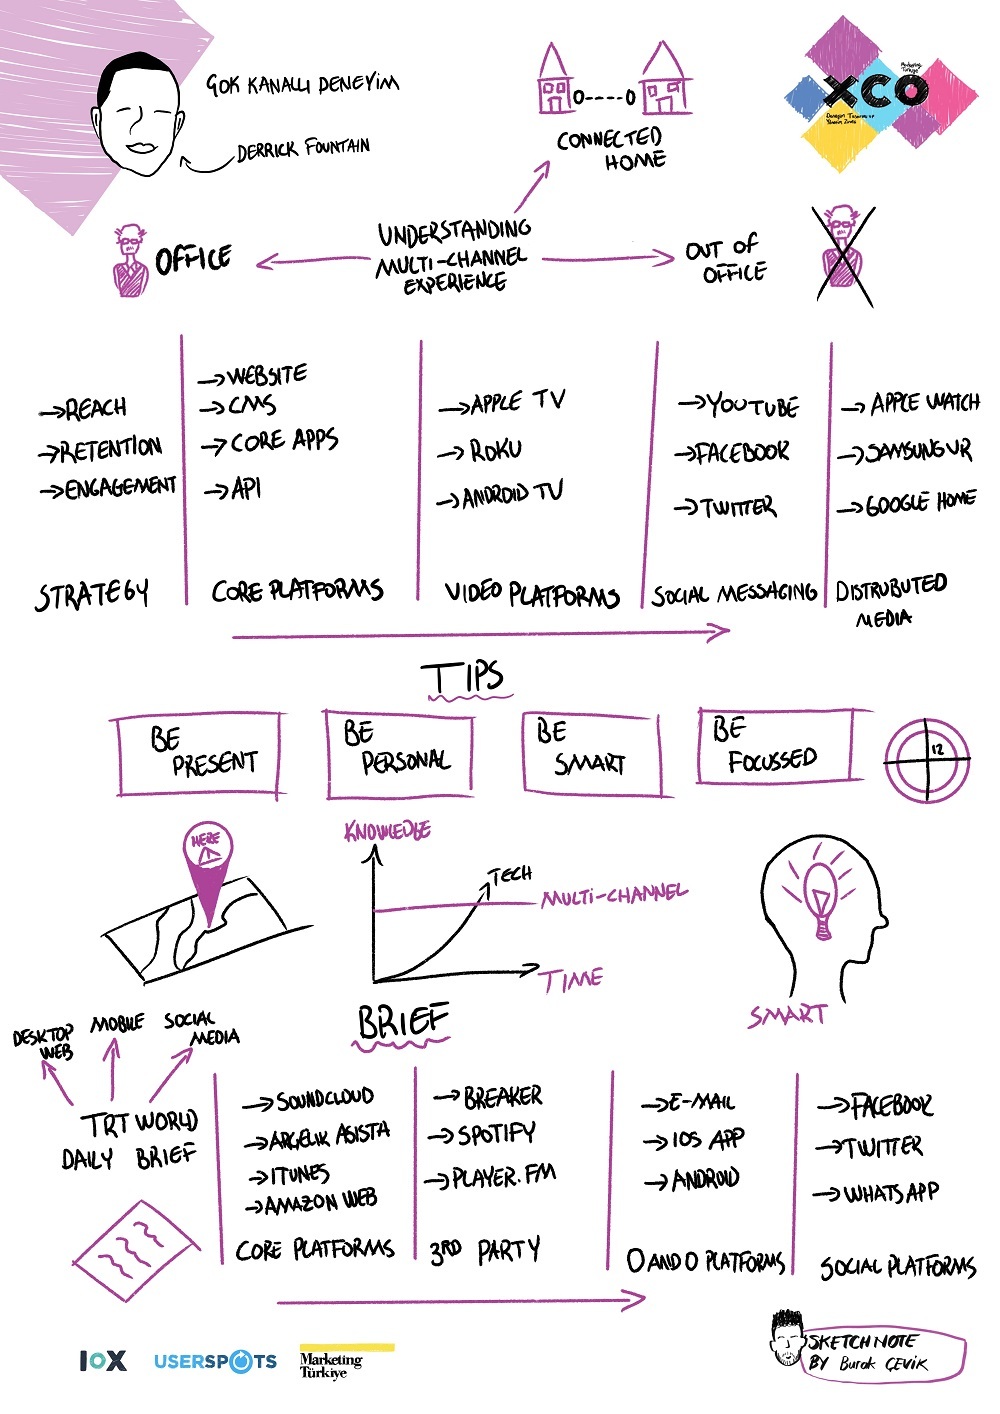 ÇOK KANALLI DENEYİM
DERRICK FOUNTAIN
CONNECTED
HOME
Marketing
Türkiye
XCO
Deneyim Tasarımı ve
Yönetimi Zirvesi
OFFICE
UNDERSTANDING
MULTI-CHANNEL
EXPERIENCE
OUT OF
OFFICE
→REACH
→RETENTION
→ENGAGEMENT
STRATEGY
→WEBSITE
→CMS
→CORE APPS
→API
CORE PLATFORMS
→APPLE TV
→ROKU
→ANDROID TV
VIDEO PLATFORMS
→YOUTUBE
→FACEBOOK
→TWITTER
SOCIAL MESSAGING
→APPLE WATCH
→SAMSUNG VR
→GOOGLE HOME
DISTRUBUTED
MEDIA
TIPS
BE
PRESENT
BE
PERSONAL
BE
SMART
BE
FOCUSSED
12
HERE
KNOWLEDGE
TECH
MULTI-CHANNEL
TIME
SMART
BRIEF
DESKTOP
WEB
MOBILE
SOCIAL
MEDIA
TRT WORLD
DAILY BRIEF
→SOUNDCLOUD
→ARÇELİK ASISTA
→ITUNES
→AMAZON WEB
CORE PLATFORMS
→BREAKER
→SPOTIFY
→PLAYER.FM
3RD PARTY
→E-MAIL
→IOS APP
→ANDROID
O AND O PLATFORMS
→FACEBOOK
→TWITTER
→WHATSAPP
SOCIAL PLATFORMS
IOX
USERSPOTS
Marketing
Türkiye
SKETCHNOTE
BY Burak ÇEVİK